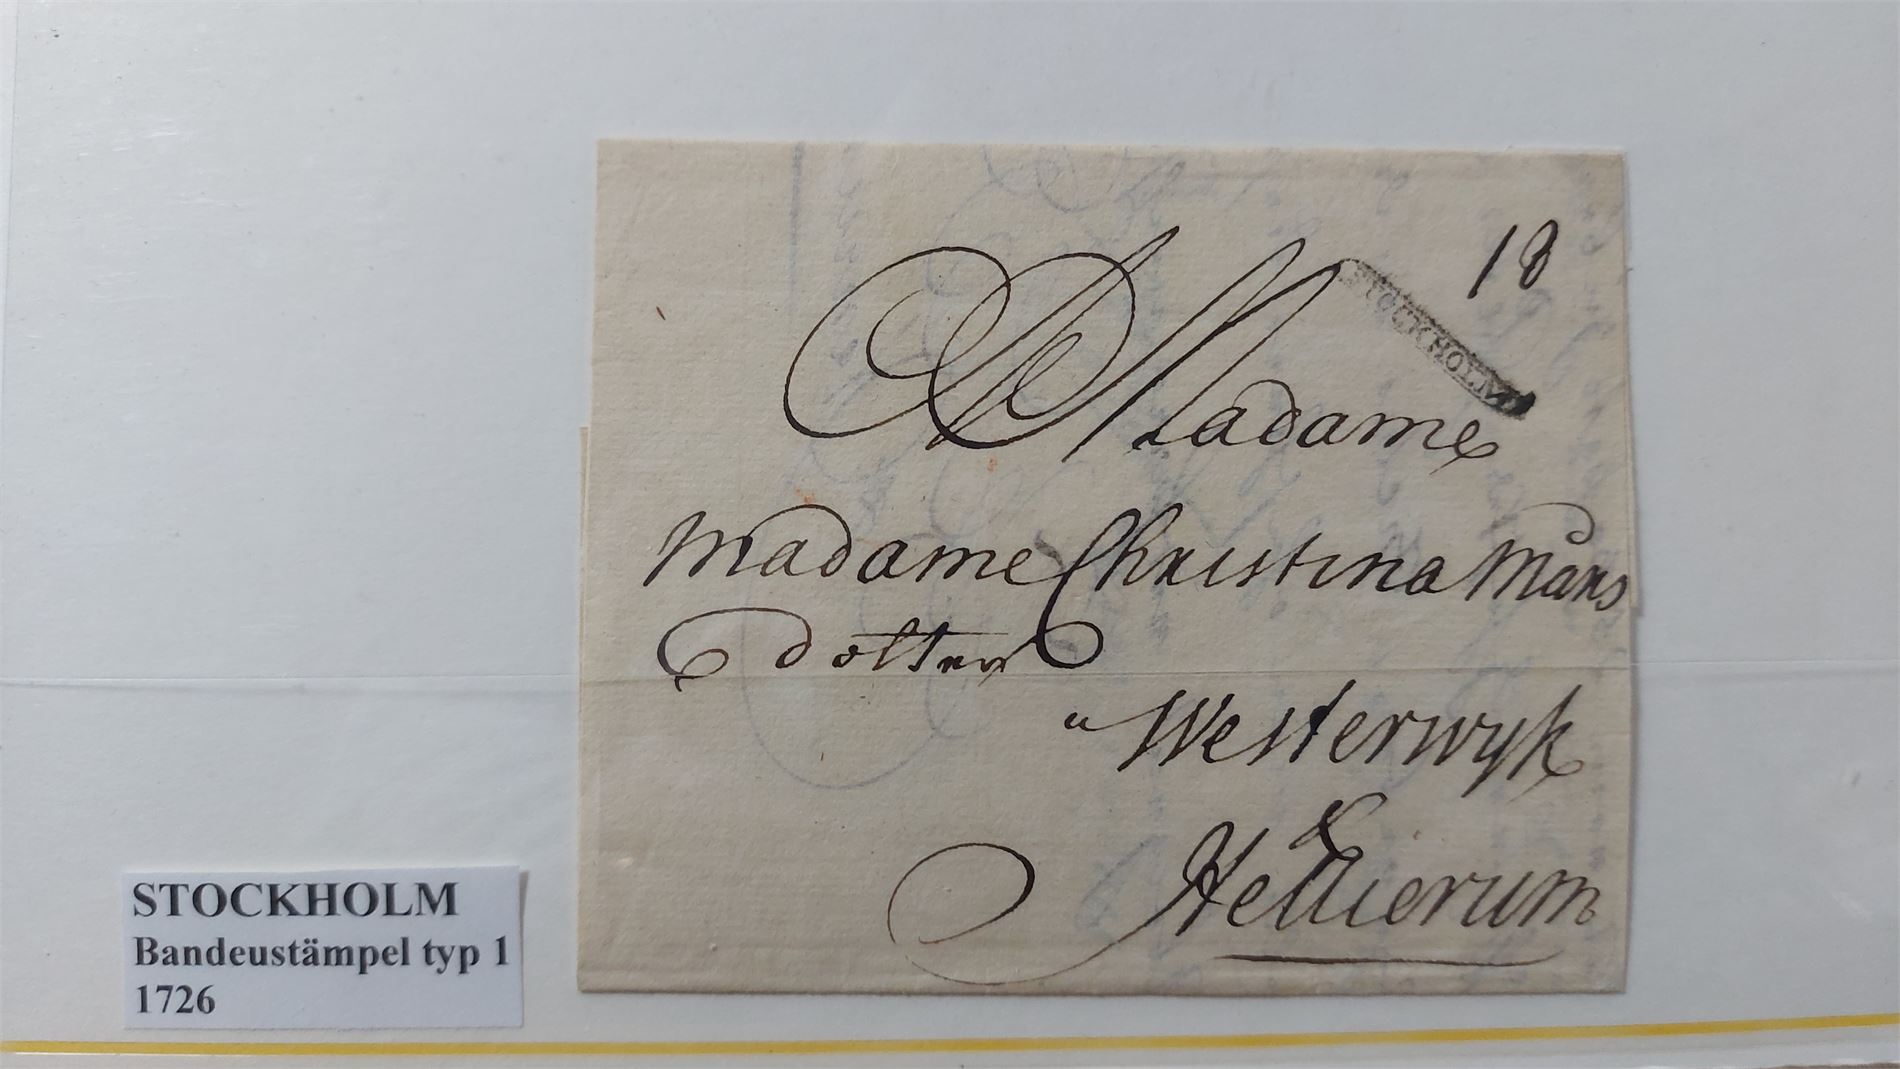 18
STOCKHOLM
Madame
Madame Christina Måns
dotter
a Westerwyk
Hellierum
STOCKHOLM
Bandeustämpel typ 1
1726